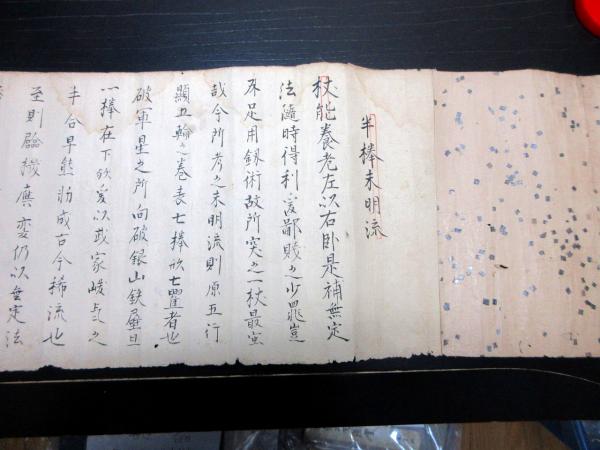 半棒未明流
杖能養老左以右卧是補無定
法隨時得利愛鄙賤之少罷豈
不足用鎵術故所突之一杖最宜
哉今所考之未明流則原五行
顯五輪之卷表七棒欣七星者也
破軍星之所向破銀山鉄壁且
一棒在下欣爰以或家峻之
半合早熊助成古今稀流也
至則臨機應変仍以無定法